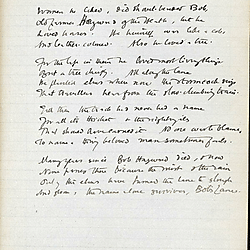 Women he liked, did shovel-bearded Bob,
Old farmer Hayward of the Heath, but he
Loved horses. He himself was like a cob,
And leather-coloured. Also he loved a tree.
For the life in them he loved most living things,
But a tree chiefly. All along the lane
He planted elms where now the stormcock sings
That travellers hear from the slow-climbing train.
Till then the track had never had a name
For all its thicket & the nightingales
That should have earned it. No one was to blame.
To name a thing beloved man sometimes fails.
Many years since Bob Hayward died, & now
None passes there because the mist & the rain
Out of the elms have turned the lane to slough
And gloom, the name alone survives, Bob's Lane.